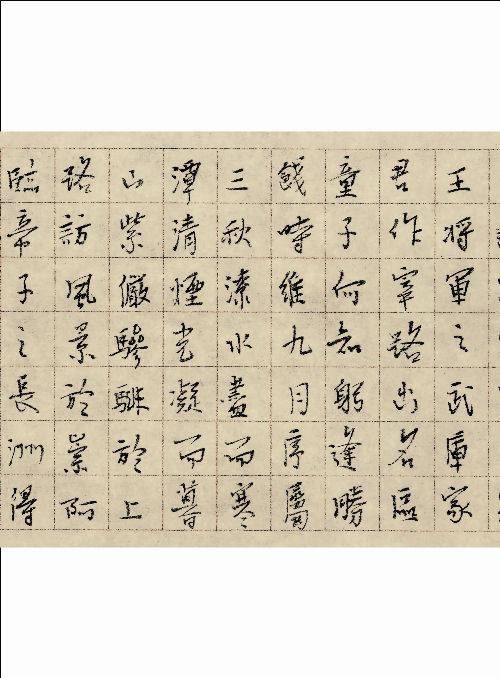 王將軍之武庫家
君作宰路出名區
童子何知躬逢勝
餞時維九月序屬
三秋潦水盡而寒
潭清煙光凝而暮
山紫儼驂騑於上
路訪風景於崇阿
臨帝子之長洲得